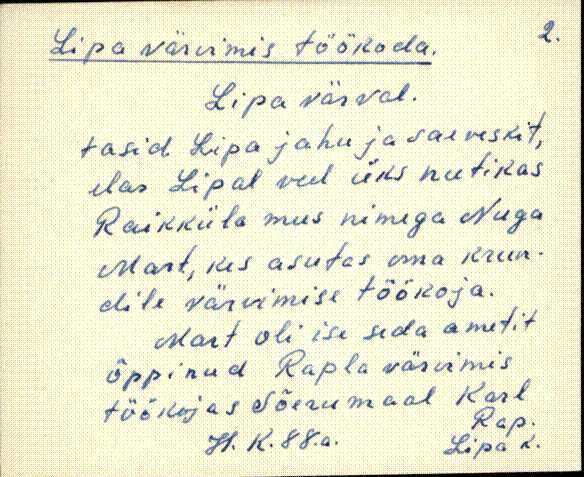 2.
Lipa värvimis töökoda.
Lipa värval.
tasid Lipa jahu ja saeveskit,
elas Lipal veel üks nutikas
Raikküla mus nimega Nuga
Mart, kes asutas oma krun-
dile värvimise töökoja.
Mart oli ise seda ametit
õppinud Rapla värvimis
töökojas Sõerumaal Karl
Rap.
H. K. 88.a. Lipa k.